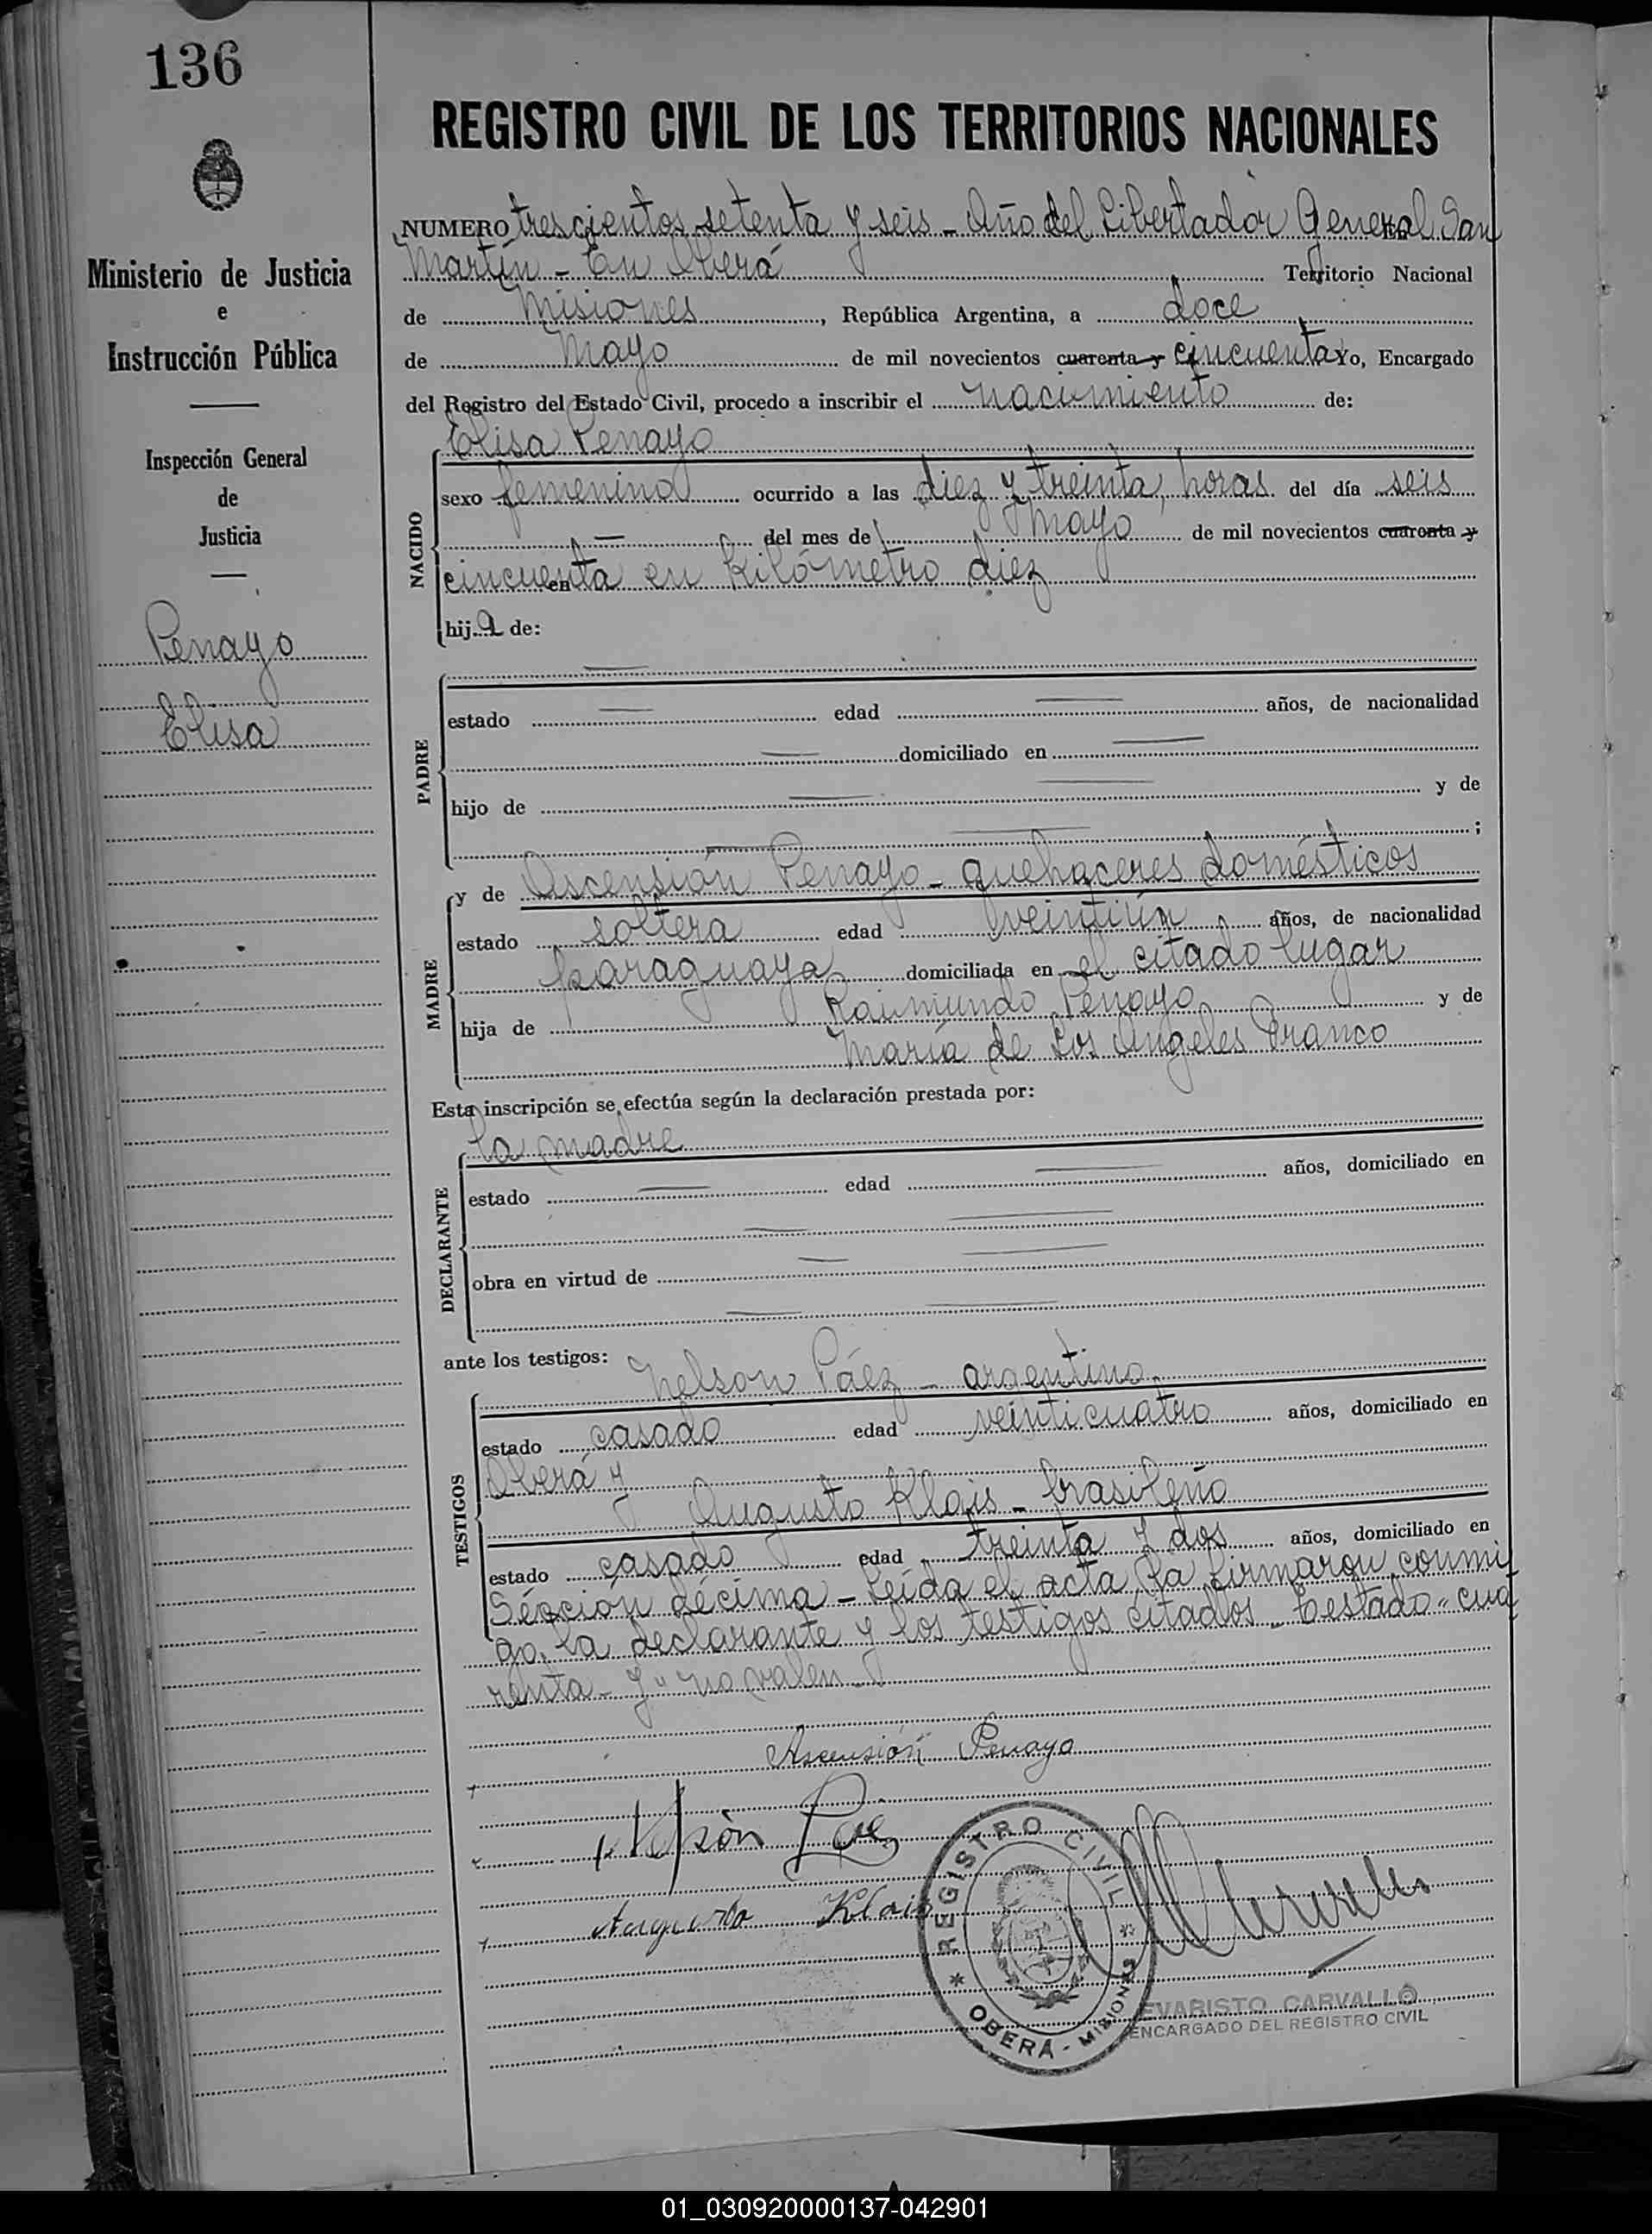 136
Ministerio de Justicia
e
Instrucción Pública
Inspección General
de
Justicia
Penayo
Elisa
REGISTRO CIVIL DE LOS TERRITORIOS NACIONALES
NUMERO trescientos setenta y seis - Año del Libertador General San
Martín - En Oberá Territorio Nacional
de Misiones, República Argentina, a doce
de Mayo de mil novecientos cuarenta y cincuenta Yo, Encargado
del Registro del Estado Civil, procedo a inscribir el nacimiento de:
Elisa Penayo
NACIDO
sexo femenino ocurrido a las diez y treinta horas del día seis
del mes de Mayo de mil novecientos cuarenta y
cincuenta en Kilómetro diez
hija de:
PADRE
estado edad años, de nacionalidad
domiciliado en
hijo de y de
;
MADRE
y de Ascensión Penayo - quehaceres domésticos
estado soltera edad veintiún años, de nacionalidad
paraguaya domiciliada en el citado lugar
hija de Raimundo Penayo y de
María de Los Angeles Franco
Esta inscripción se efectúa según la declaración prestada por:
la madre
DECLARANTE
estado edad años, domiciliado en
obra en virtud de
ante los testigos:
TESTIGOS
Nelson Páez - argentino
estado casado edad veinticuatro años, domiciliado en
Oberá y
Augusto Klais - brasileño
estado casado edad treinta y dos años, domiciliado en
Sección décima - Leída el acta, la firmaron conmi
go, la declarante y los testigos citados - Testado "cua
renta - y" no valen -
Ascensión Penayo
Nelsón Páez
Augusto Klais
* REGISTRO CIVIL *
OBERÁ - MISIONES
EVARISTO CARVALLO
ENCARGADO DEL REGISTRO CIVIL
01_030920000137-042901